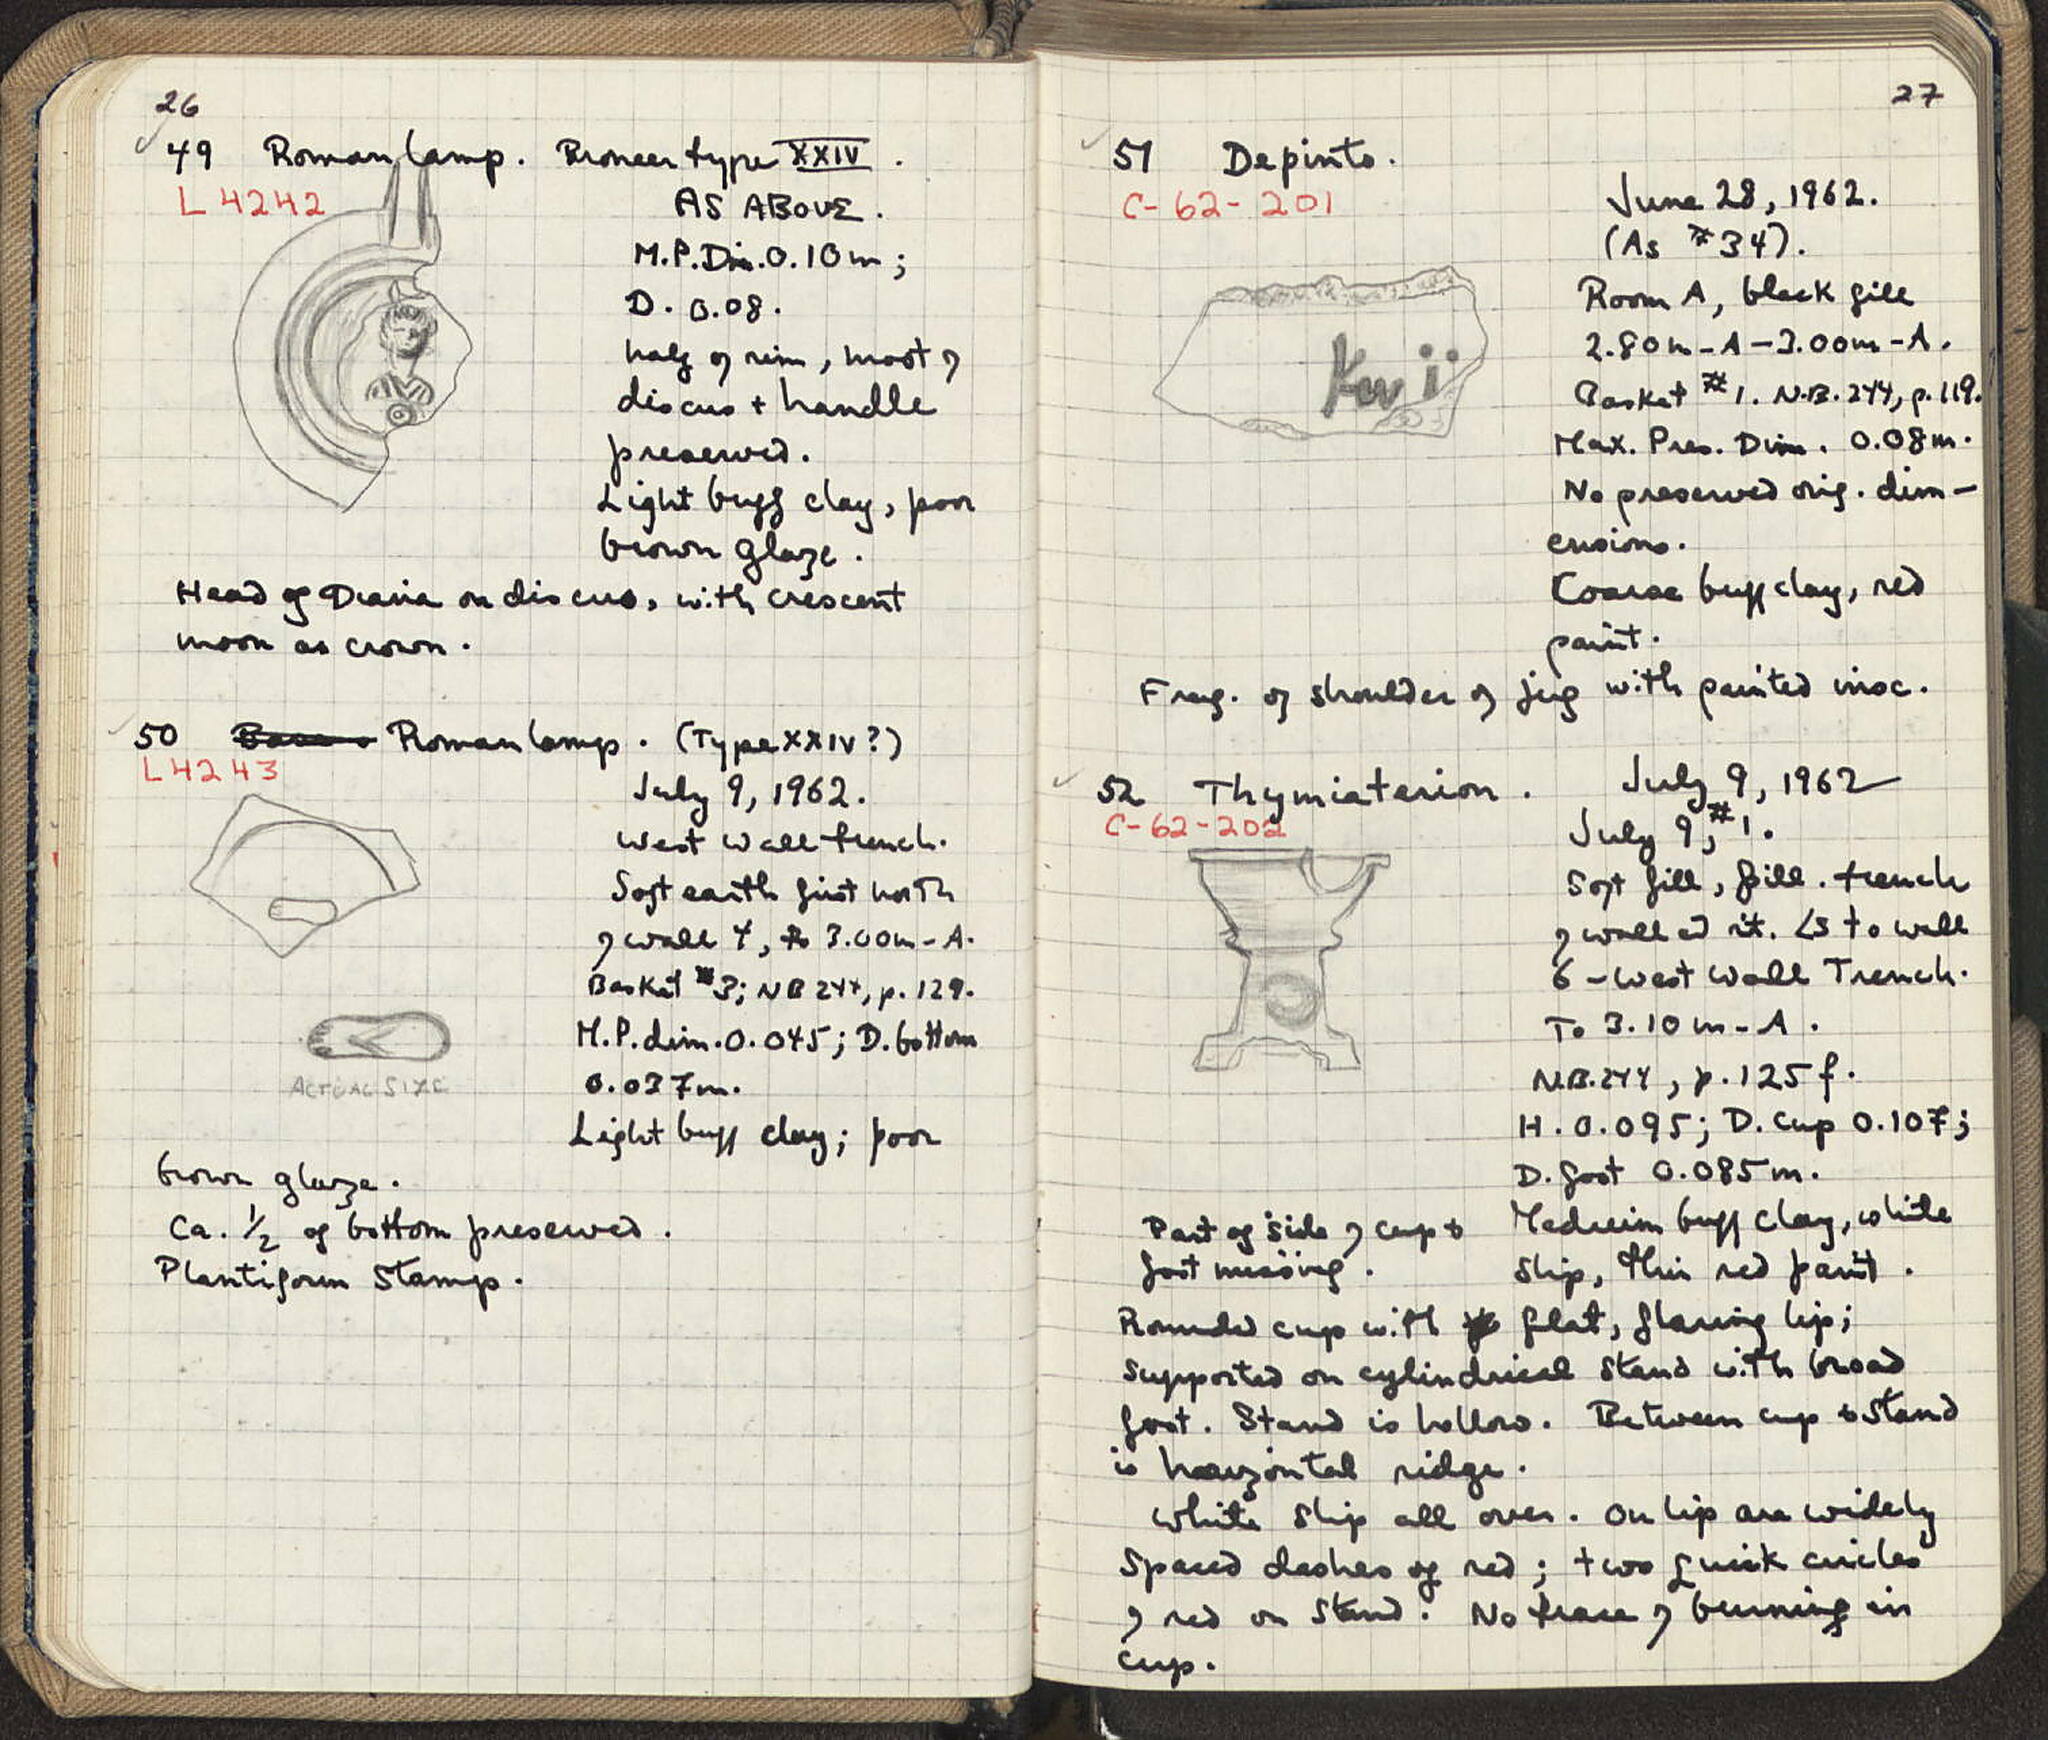 26
49 Roman lamp. Broneer type XXIV.
L 4242
AS ABOVE.
M.P.Dim. 0.10m;
D. 0.08.
half of rim, most of
discus + handle
preserved.
Light buff clay, poor
brown glaze.
Head of Diana on discus, with crescent
moon as crown.
50 Roman lamp. (Type XXIV?)
L 4243
July 9, 1962.
West Wall trench.
Soft earth first north
of wall 4, to 3.00m-A.
Basket #3; NB 244, p. 129.
M.P.dim. 0.045; D. bottom
0.037m.
ACTUAL SIZE
Light buff clay; poor
brown glaze.
Ca. 1/2 of bottom preserved.
Plantiform Stamp.
27
51 Depinto.
C-62-201
June 28, 1962.
(As #34).
Room A, black fill
2.80m-A-3.00m-A.
Basket #1. N.B. 244, p. 119.
Max. Pres. Dim. 0.08m.
No preserved orig. dim-
ensions.
Coarse buff clay, red
paint.
Frag. of shoulder of jug with painted insc.
52 Thymiaterion. July 9, 1962
C-62-202
July 9, #1.
Soft fill, fill. trench
to wall
6-West Wall Trench.
To 3.10m-A.
N.B. 244, p. 125 f.
H. 0.095; D. cup 0.107;
D. foot 0.085m.
Part of side of cup &
foot missing.
Medium buff clay, white
slip, thin red paint.
Rounded cup with flat, flaring lip;
supported on cylindrical stand with broad
foot. Stand is hollow. Between cup & stand
is horizontal ridge.
White slip all over. On lip are widely
spaced dashes of red; two quick circles
of red on stand. No trace of burning in
cup.